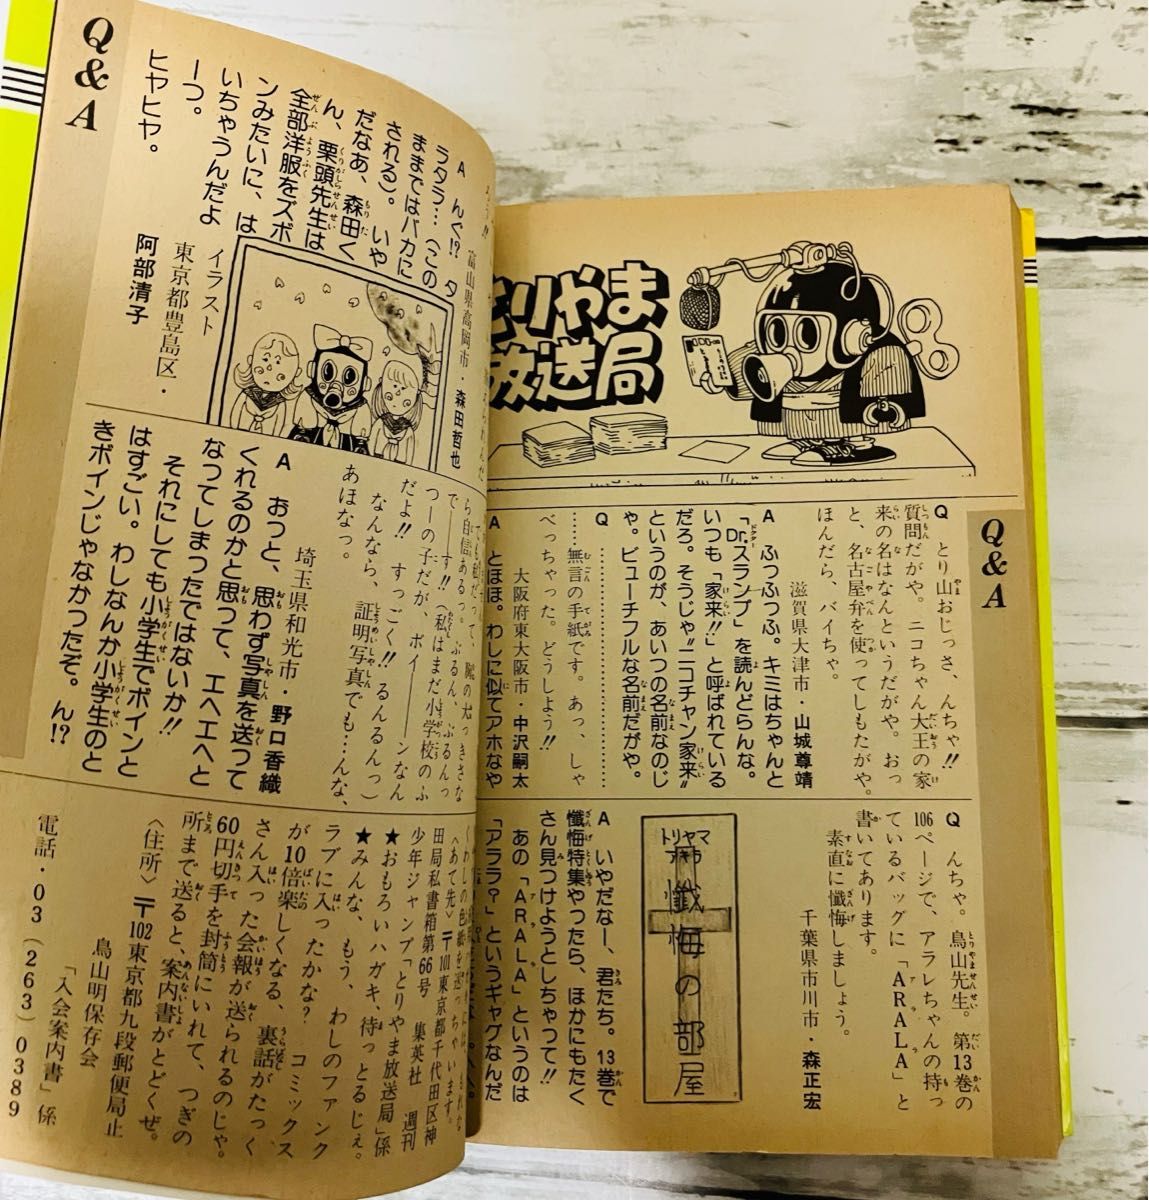 とりやま
放送局
Q&A
Q とり山おじっさ、んちゃ!!
質問だがや。ニコちゃん大王の家
来の名はなんというだがや。おっ
と、名古屋弁を使ってしもたがや。
ほんだら、バイちゃ。
滋賀県大津市・山城尊靖
A ふっふっふ。キミはちゃんと
「Dr.スランプ」を読んどらんな。
いつも「家来!!」と呼ばれている
だろ。そうじゃ〝ニコチャン家来〟
というのが、あいつの名前なのじ
ゃ。ビューチフルな名前だがや。
Q ……………………………
……無言の手紙です。あっ、しゃ
べっちゃった。どうしよう!!
大阪府東大阪市・中沢嗣太
A とほほ。わしに似てアホなや
Q んちゃ。鳥山先生。第13巻の
106ページで、アラレちゃんの持っ
ているバッグに「ARALA」と
書いてあります。
素直に懺悔しましょう。
千葉県市川市・森正宏
トリヤマ
アキラ
懺悔の部屋
A いやだなー、君たち。13巻で
懺悔特集やったら、ほかにもたく
さん見つけようとしちゃって!!
あの「ARALA」というのは
「アララ?」というギャグなんだ
富山県高岡市・森田哲也
A んぐ!? タ
ラタラ…(この
ままではバカに
される)。いや
だなあ、森田く
ん、栗頭先生は
全部洋服をズボ
ンみたいに、は
いちゃうんだよ
ーつ。
ヒヤヒヤ。
イラスト
東京都豊島区・
阿部清子
Q&A
ら自信あるっ。ぶるん、ぶるんっ
で――す!!(私はまだ小学校のふ
つーの子だが、ボイ――ンなん
だよ!! すっごく!! るんるんっ)
なんなら、証明写真でも…んな、
あほなっ。
埼玉県和光市・野口香織
A おっと、思わず写真を送って
くれるのかと思って、エヘエヘと
なってしまったではないか!!
それにしても小学生でボインと
はすごい。わしなんか小学生のと
きボインじゃなかったぞ。ん!?
〈あて先〉〒101東京都千代田区神
田局私書箱第66号 集英社 週刊
少年ジャンプ「とりやま放送局」係
★おもろいハガキ、待っとるじぇ。
★みんな、もう、わしのファンク
ラブに入ったかな? コミックス
が10倍楽しくなる、裏話がたっく
さん入った会報が送られるのじゃ。
60円切手を封筒にいれて、つぎの
所まで送ると、案内書がとどくぜ。
〈住所〉〒102東京都九段郵便局止
鳥山明保存会
「入会案内書」係
電話・03(263)0389